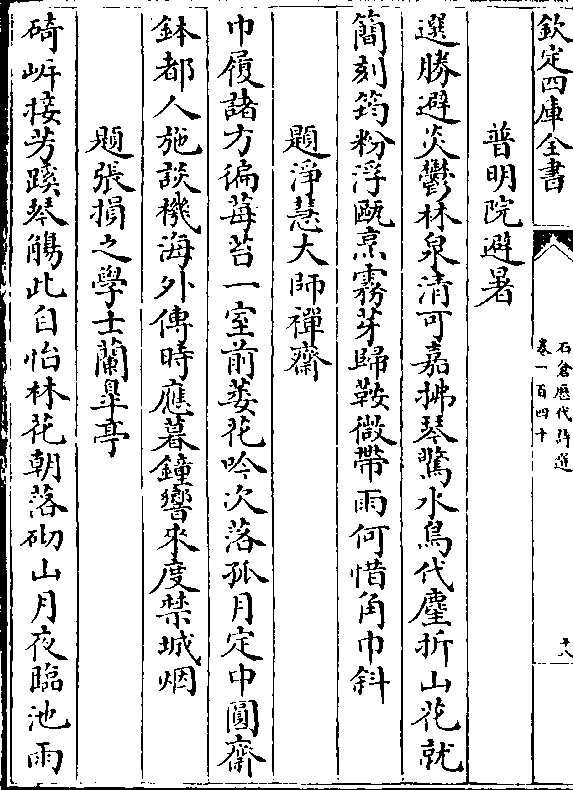 欽定四庫全書
石倉歷代詩選
卷一百四十
十八
普明院避暑
選勝避炎鬱林泉清可嘉拂琴驚水鳥代麈折山花就
簡刻筠粉浮甌烹霧芽歸鞍微帶雨何惜角巾斜
題淨慧大師禪齋
巾履諸方徧莓苔一室前萎花吟次落孤月定中圓齋
鉢都人施談機海外傳時應暮鐘響來度禁城烟
題張損之學士蘭臯亭
碕岓接芳蹊琴觴此自怡林花朝落砌山月夜臨池雨